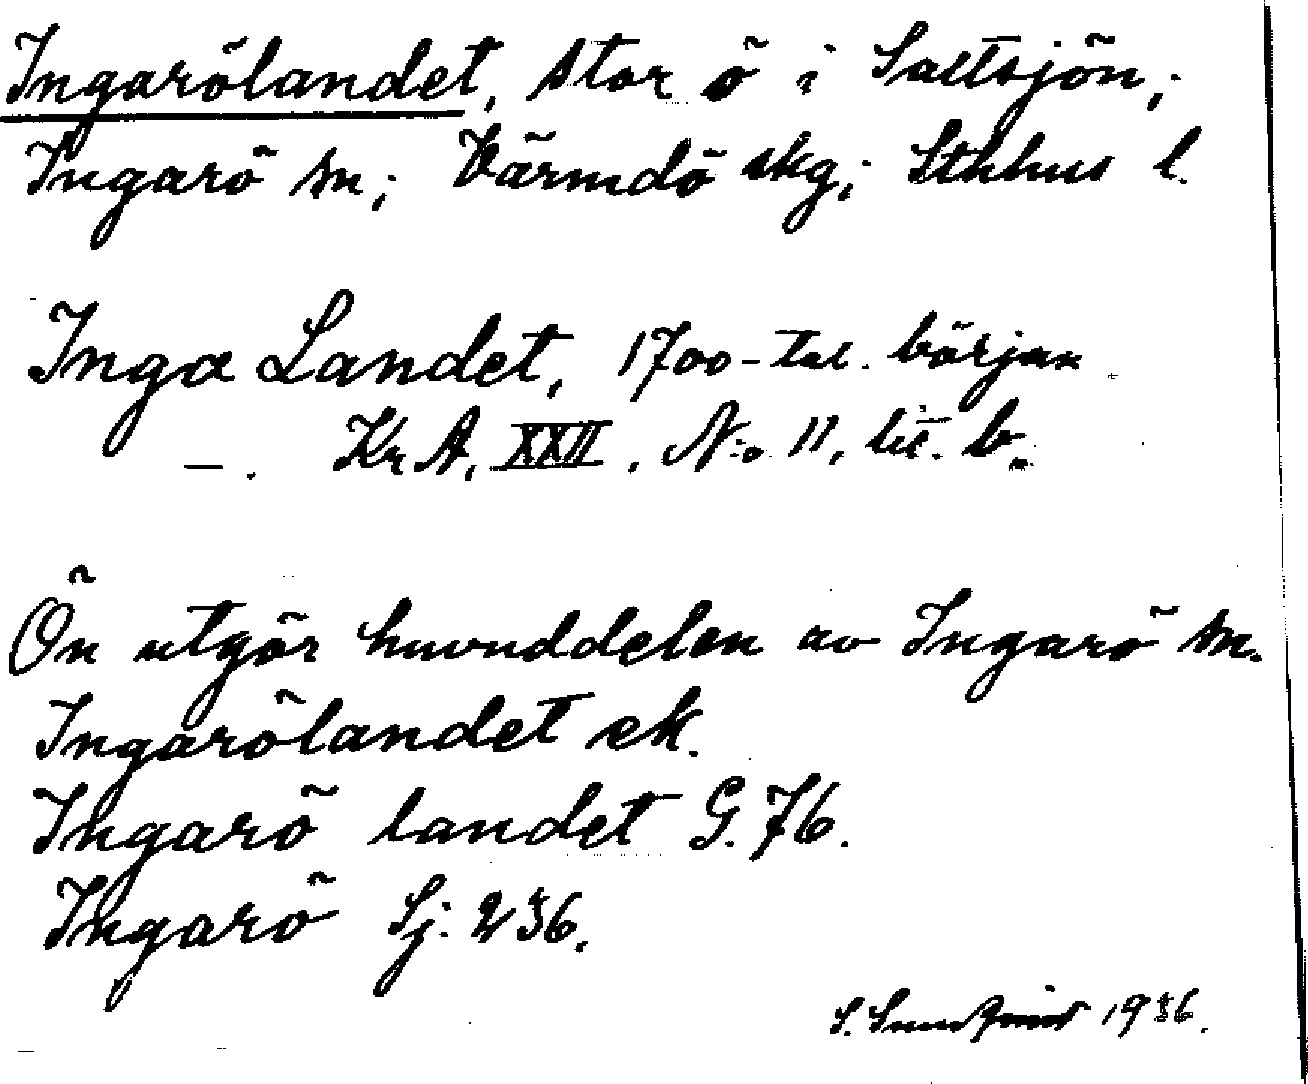 Ingarölandet, stor ö i Saltsjön,
Ingarö sn; Värmdö skg; Sthlms l.
Inga Landet, 1700-tal. början
—. Kr A. XXII. N:o 11, lit. b.
Ön utgör huvuddelen av Ingarö sn.
Ingarölandet ek.
Ingarö landet G. 76.
Ingarö Sj: 236.
S. 1936.